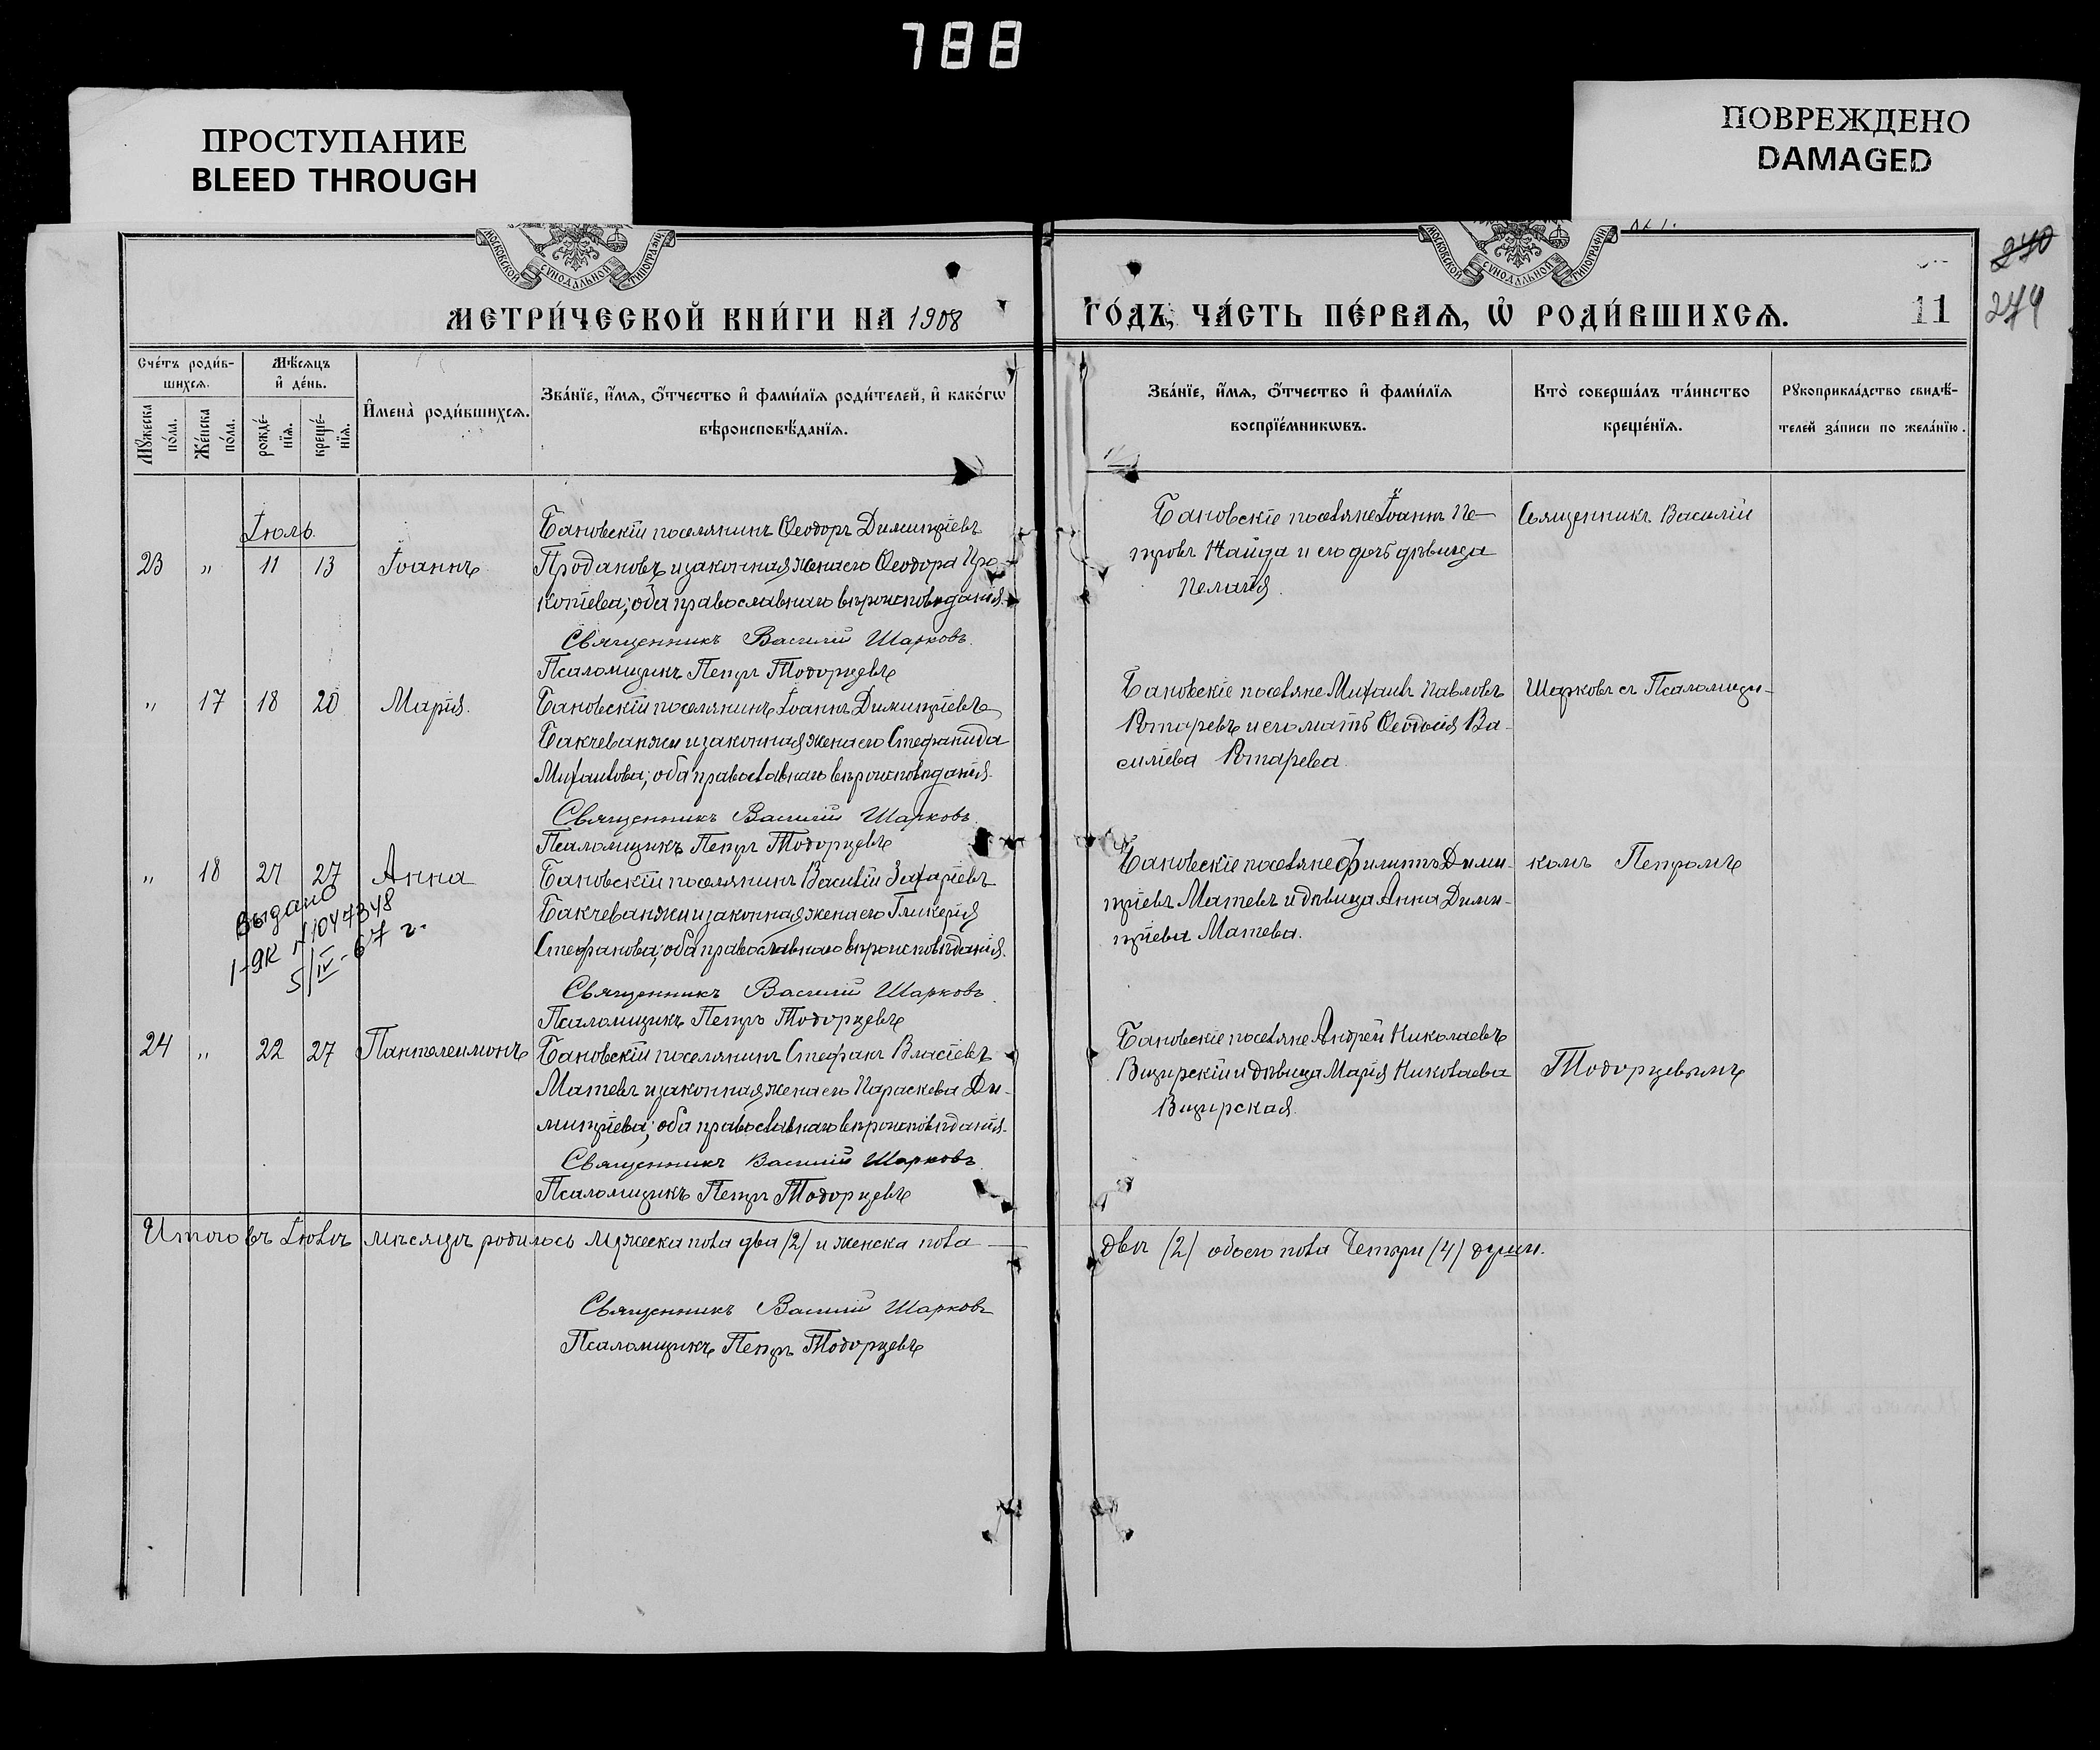 788
ПРОСТУПАНИЕ
BLEED THROUGH
ПОВРЕЖДЕНО
DAMAGED
МОСКОВСКОЙ СѴНОДАЛЬНОЙ ТИПОГРАФІИ
МОСКОВСКОЙ СѴНОДАЛЬНОЙ ТИПОГРАФІИ
240
274
МЕТРИ́ЧЕСКОЙ КНИ́ГИ НА 1908
ГО́ДЪ, ЧА́СТЬ ПЕ́РВАѦ, Ѡ҆ РОДИ́ВШИХСѦ.
11
Сче́тъ роди́в-
шихсѧ.
Мꙋ́жеска по́ла.
Же́нска по́ла.
Мѣ́сѧцъ
и҆ де́нь.
рожде́-нїѧ.
креще́-нїѧ.
И҆мена̀ роди́вшихсѧ.
Зва́нїе, и҆́мѧ, ѻ҆́тчество и҆ фами́лїѧ роди́телей, и҆ како́гѡ
вѣроисповѣ́данїѧ.
Зва́нїе, и҆́мѧ, ѻ҆́тчество и҆ фами́лїѧ
воспрїе́мникѡвъ.
Кто̀ соверша́лъ та́инство
креще́нїѧ.
Рꙋкоприкла́дство свидѣ́-
телей за́писи по жела́нїю.
Іюль.
23 „ 11 13 Іоаннъ
Бановскій поселянинъ Ѳеодоръ Димитріевъ
Продановъ и законная жена его Ѳеодора Про-
копіева; оба православнаго вѣроисповѣданія.
Священникъ Василій Шарковъ.
Псаломщикъ Петръ Тодорцевъ
Бановскіе поселяне Іоаннъ Пе-
тровъ Найда и его дочь дѣвица
Пелагія.
Священникъ Василій
„ 17 18 20 Марія.
Бановскій поселянинъ Іоаннъ Димитріевъ
Бакчеванжи и законная жена его Стефанида
Михаилова; оба православнаго вѣроисповѣданія.
Священникъ Василій Шарковъ.
Псаломщикъ Петръ Тодорцевъ
Бановскіе поселяне Михаилъ Павловъ
Ротаревъ и его мать Ѳеодосія Ва-
силіева Ротарева.
Шарковъ съ Псаломщи-
„ 18 21 27 Анна
Бановскій поселянинъ Василій Захаріевъ
Бакчеванжи и законная жена его Гликерія
Стефанова; оба православнаго вѣроисповѣданія.
Священникъ Василій Шарковъ.
Псаломщикъ Петръ Тодорцевъ
Выдано
I-ЯК №1047348
5/IV-67 г.
Бановскіе поселяне Филиппъ Дими-
тріевъ Матевъ и дѣвица Анна Дими-
тріева Матева.
комъ Петромъ
24 „ 22 27 Пантелеимонъ
Бановскій поселянинъ Стефанъ Власіевъ
Матевъ и законная жена его Параскева Ди-
митріева; оба православнаго вѣроисповѣданія.
Священникъ Василій Шарковъ.
Псаломщикъ Петръ Тодорцевъ
Бановскіе поселяне Андрей Николаевъ
Визирскій и дѣвица Марія Николаева
Визирская.
Тодорцевымъ
Итого въ Іюлѣ мѣсяцѣ родилось мужеска пола два (2) и женска пола
двѣ (2) обоего пола Четыри (4) души.
Священникъ Василій Шарковъ
Псаломщикъ Петръ Тодорцевъ